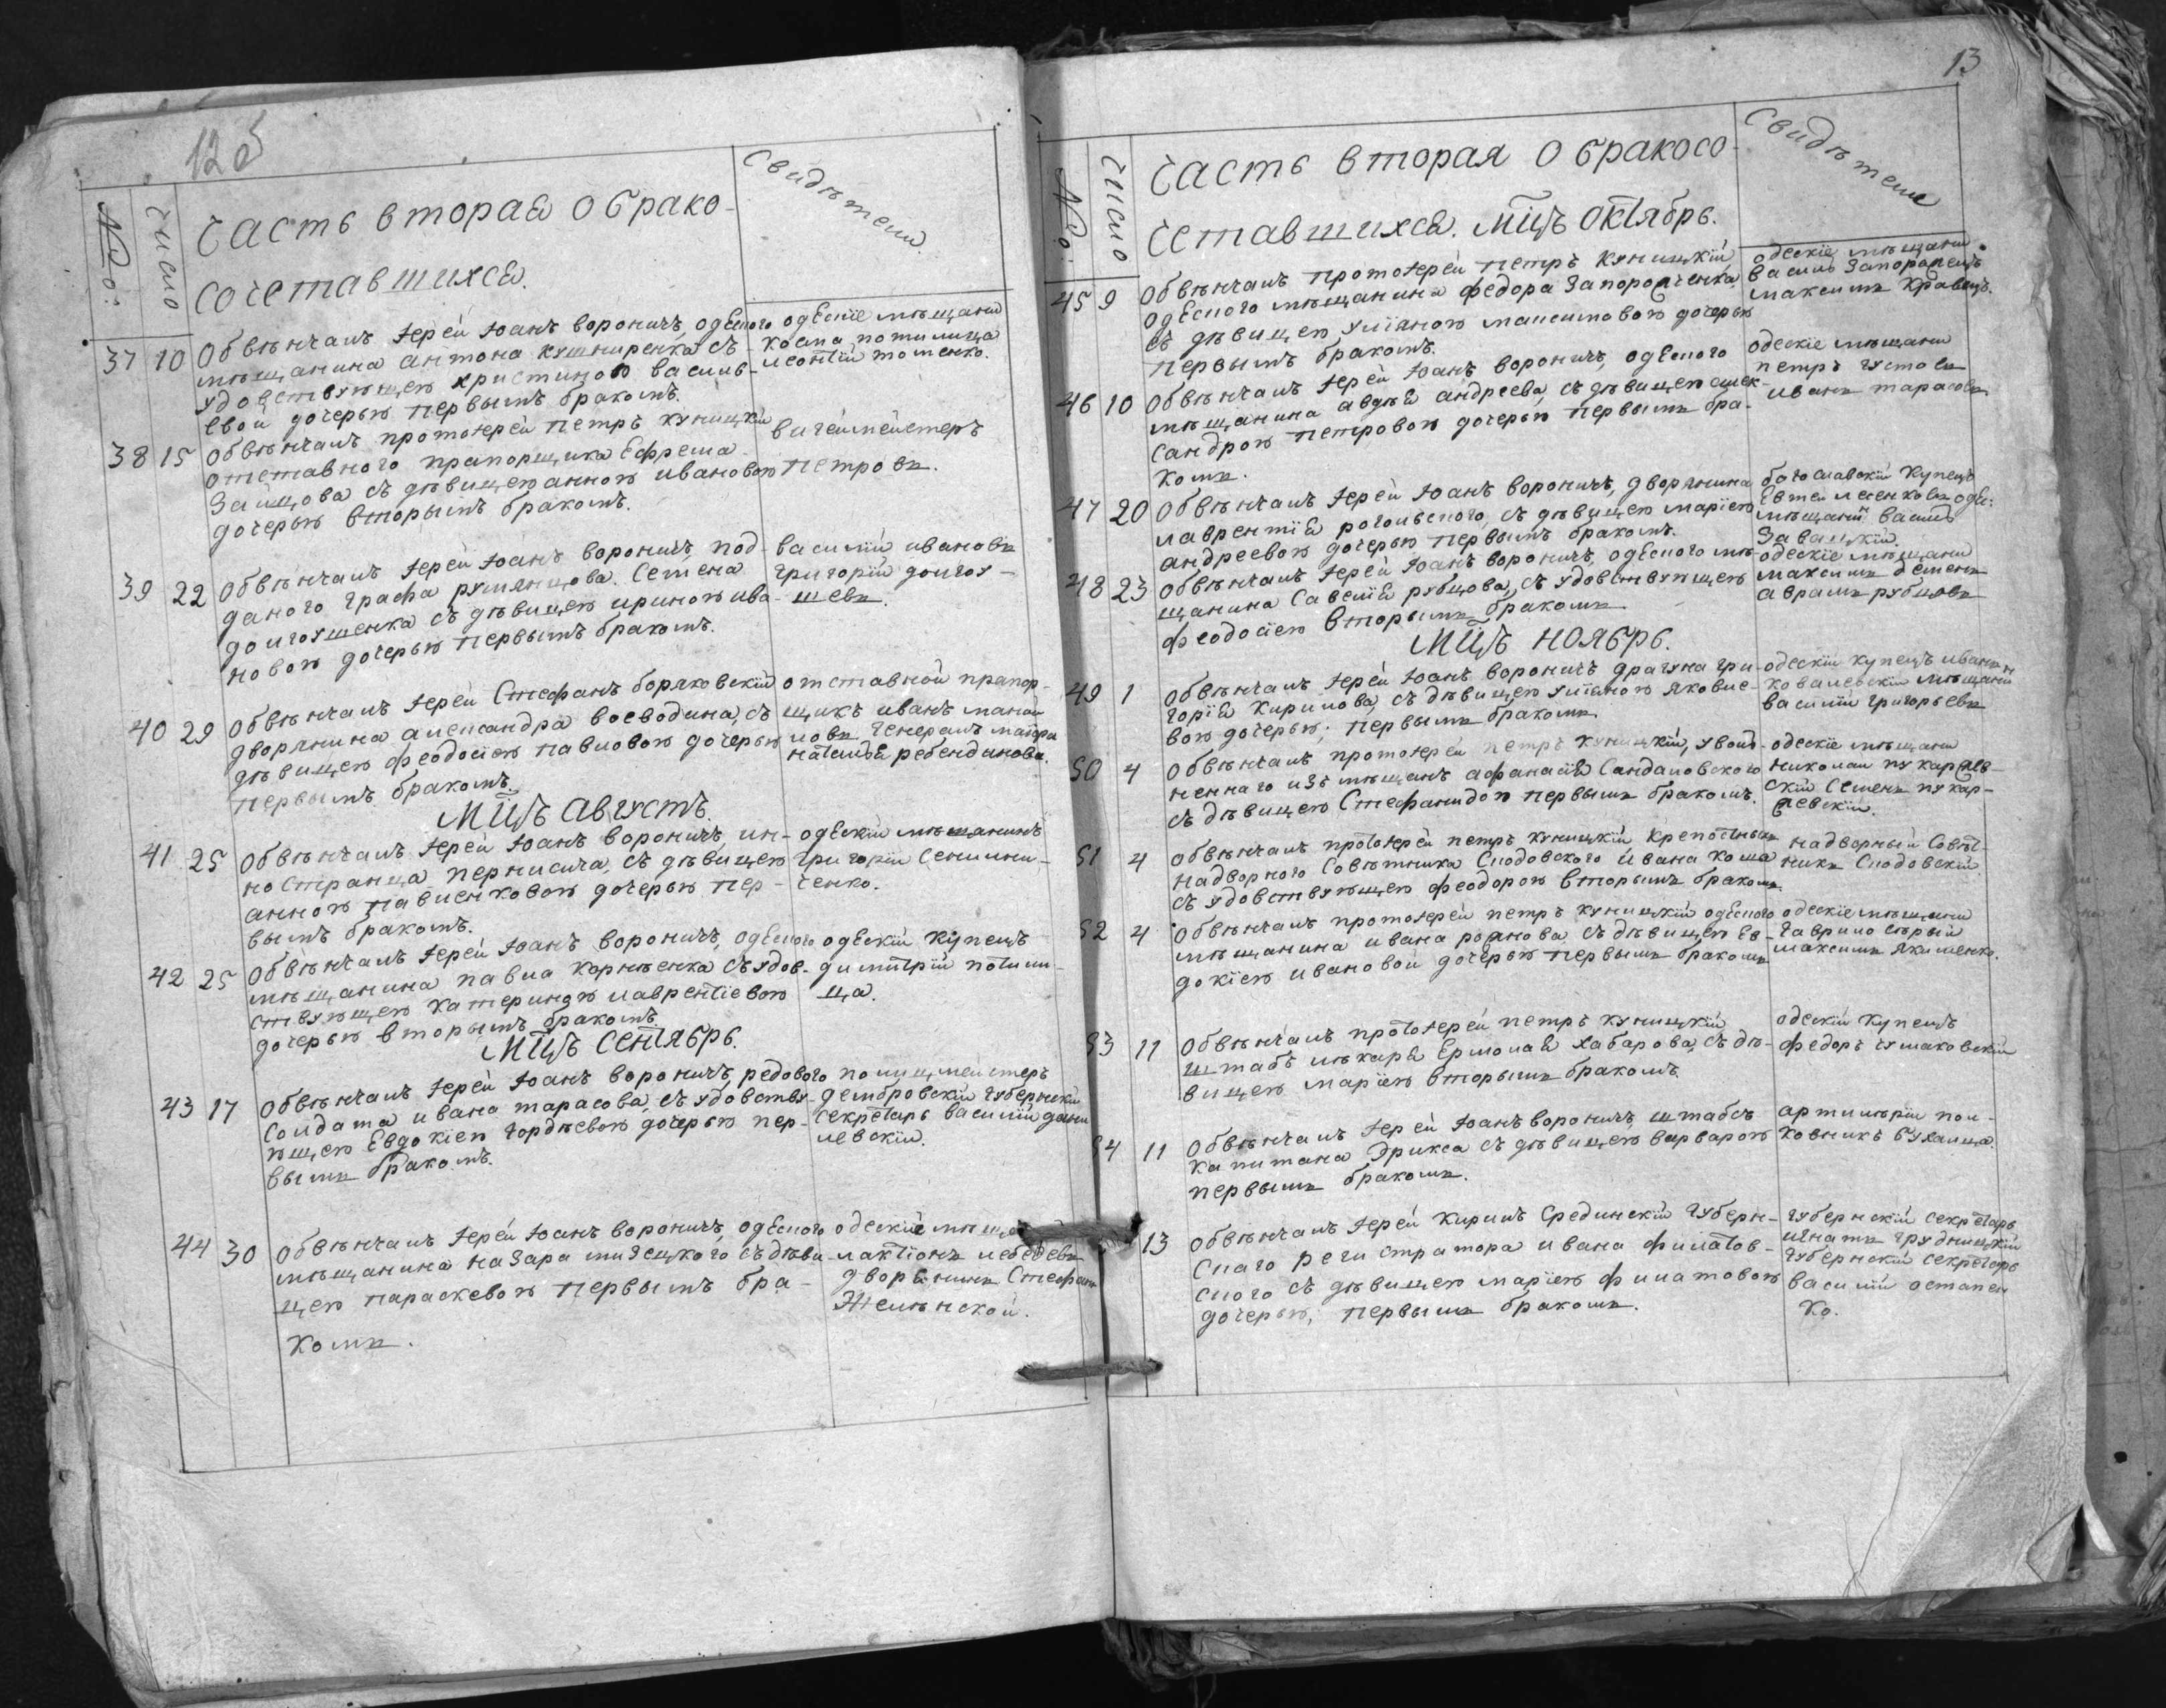 12 об
№: число
Часть вторая о брако-
сочетавшихся.
Свидѣтели
37 10 Обвѣнчалъ іерей Іоанъ Вороничъ, одеского
мѣщанина Антона Кушниренка съ
удовствующею Христиною Василь-
евой дочерью первымъ бракомъ.
одескіе мѣщани
Косма потилица
Леонтій Томенко.
38 15 Обвѣнчалъ протоіерей Петръ Куницкій
отставного прапорщика Ефрема
Заицова съ дѣвицею Анною Ивановою
дочерью вторымъ бракомъ.
вагеймейстеръ
Петровъ.
39 22 Обвѣнчалъ іерей Іоанъ Вороничъ, под-
даного графа Румянцова Семена
Долгоушенка съ дѣвицею Ириною Ива-
новою дочерью первымъ бракомъ.
Василій Ивановъ
Григорій Долгоу-
шевъ.
40 29 Обвѣнчалъ іерей Стефанъ Боряковскій
дворянина Александра Воеводина, съ
дѣвицею Феодосіею Павловою дочерью
первымъ бракомъ.
отставной прапор-
щикъ Иванъ Манои
ловъ Генералъ маіора
Наталія Ребендинова.
Мцъ Августъ.
41 25 Обвѣнчалъ іерей Іоанъ Вороничъ, ин-
ностранца Пернисича, съ дѣвицею
Анною Павленковою дочерью пер-
вымъ бракомъ.
одескій мѣщанинъ
Григорій Семини-
ченко.
42 25 Обвѣнчалъ іерей Іоанъ Вороничъ, одеского
мѣщанина Павла Корнѣенка съ удов-
ствующею Катериною Лаврентіевою
дочерью вторымъ бракомъ.
одескій купецъ
Димитрій Потили-
ца.
Мцъ Сентябрь.
43 17 Обвѣнчалъ іерей Іоанъ Вороничъ, редового
солдата Ивана Тарасова, съ удовству-
ющею Евдокіею Гордѣевою дочерью пер-
вымъ бракомъ.
полицмейстеръ
Дембровскій губернскій
секретарь Василій Дани
левскій.
44 30 Обвѣнчалъ іерей Іоанъ Вороничъ, одеского
мѣщанина Назара Мизецкого съ дѣви-
цею Параскевою первымъ бра-
комъ.
одескіе
Лактіонъ Лебедевъ
дворянинъ Стефанъ
Желѣнской.
13
№: число
Часть вторая о бракосо-
четавшихся. Мцъ Октябрь.
Свидѣтели
45 9 Обвѣнчалъ протоіерей Петръ Куницкій
одеского мѣщанина Федора Запорожченка
съ дѣвицею Уліяною Максимовою дочерью
первымъ бракомъ.
одескіе мѣщани
Василь Запорожецъ
Максимъ Кравецъ.
46 10 Обвѣнчалъ іерей Іоанъ Вороничъ, одеского
мѣщанина Авдѣя Андреева, съ дѣвицею Алек-
сандрою Петровою дочерью первымъ бра-
комъ.
одескіе мѣщани
Петръ Густовъ
Иванъ Тарасовъ
47 20 Обвѣнчалъ іерей Іоанъ Вороничъ, дворянина
Лаврентія Рогольского, съ дѣвицею Маріею
Андреевою дочерью первымъ бракомъ.
богославскій купецъ
Евтей Лесенковъ оде:
мѣщанинъ Василь
Завацкій.
48 23 Обвѣнчалъ іерей Іоанъ Вороничъ, одеского мѣ-
щанина Савелія Рубцова, съ удовствующею
Феодосіею вторымъ бракомъ
одескіе мѣщани
Максимъ Деменъ
Аврамъ Рубцовъ
Мцъ Ноябрь.
49 1 Обвѣнчалъ іерей Іоанъ Вороничъ драгуна Гри-
горія Кирилова, съ дѣвицею Уліяною Яковле-
вою дочерью; первымъ бракомъ
одескій купецъ Иванъ
Ковалевскій мѣщанинъ
Василій Григорьевъ
50 4 Обвѣнчалъ протоіерей Петръ Куницкій, уволь-
неннаго изъ мѣщанъ Афанасія Сандаловского
съ дѣвицею Стефанидою первымъ бракомъ.
одескіе мѣщани
Николай Пукаржев-
скій Семенъ Пукар-
жевскій.
51 4 Обвѣнчалъ протоіерей Петръ Куницкій крепостныхъ
надворного совѣтника Сподовского Ивана Коша
съ удовствующею Феодорою вторымъ бракомъ.
надворный совѣт-
никъ Сподовскій
52 4 Обвѣнчалъ протоіерей Петръ Куницкій одеского
мѣщанина Ивана Романова съ дѣвицею Ев-
докіею Ивановой дочерью первымъ бракомъ
одескіе мѣщани
Гаврило Сѣрый
Максимъ Якименко.
53 11 Обвѣнчалъ протоіерей Петръ Куницкій
штабъ лѣкаря Ермолая Хабарова, съ дѣ-
вицею Маріею вторымъ бракомъ.
одескій купецъ
Федоръ Чумаковскій
54 11 Обвѣнчалъ іерей Іоанъ Вороничъ, штабсъ
капитана Эрикса съ дѣвицею Варварою
первымъ бракомъ.
артилѣріи пол-
ковникъ Бухалца.
13 Обвѣнчалъ іерей Кирилъ Срединскій губерн-
скаго регистратора Ивана Филатов-
ского съ дѣвицею Маріею Филатовою
дочерью, первымъ бракомъ.
губернскій секретарь
Игнатъ Грудницкій
губернскій секретарь
Василій Остапен
ко.